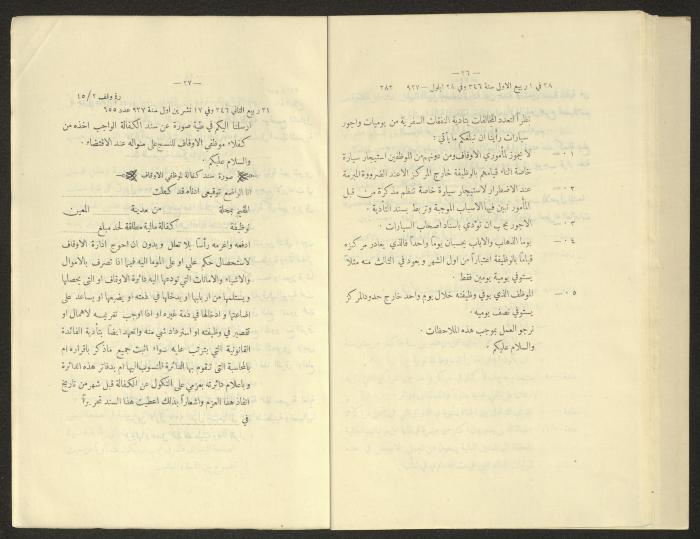 — ٢٦ —
٢٨ في ١ ربيع الاول سنة ٣٤٦ وفي ٢٨ ايلول — ٩٢٧ ٢٨٢
نظراً لتعدد المخالفات بتأدية النفقات السفرية من يوميات واجور
سيارات رأينا ان نبلغكم ما يأتي:
٠١ — لا يجوز لمأموري الاوقاف ومن دونهم من الموظفين استيجار سيارة
خاصة اثناء قيامهم بالوظيفة خارج المركز الا عند الضرورة المبرمة
٠٢ — عند الاضطرار لاستيجار سيارة خاصة تنظم مذكرة من قبل
المأمور تبين فيها الاسباب الموجبة وتربط بسند التأدية.
٠٣ — الاجور يجب ان تؤدي باسناد اصحاب السيارات.
٠٤ — يوما الذهاب والاياب يحسبان يوماً واحداً فالذي يغادر مركزه
قياماً بالوظيفة اعتباراً من اول الشهر ويعود في الثالث منه مثلاً
يستوفي يومية يومين فقط.
٠٥ — الموظف الذي يوفي وظيفته خلال يوم واحد خارج حدود المركز
يستوفي نصف يومية.
نرجو العمل بموجب هذه الملاحظات.
والسلام عليكم.
— ٢٧ —
١٥/٢
٢١ ربيع الثاني ٣٤٦ وفي ١٧ تشرين اول سنة ٩٢٧ عدد ٦٥٥
ارسلنا اليكم في طية صورة عن سند الكفالة الواجب اخذه من
كفلاء موظفي الاوقاف للنسج على منواله عند الاقتضاء.
والسلام عليكم.
صورة سند كفالة لموظفي الاوقاف
انا الواضع توقيعي ادناه قد كفلت
المقيم بمحلة من مدينة المعين
لوظيفة كفالة مالية مطلقة لحد مبلغ
ادفعه واغرمه رأساً بلا تعلل وبدون ان احوج ادارة الاوقاف
لاستحصال حكم علي او على الموما اليه فيما اذا تصرف بالاموال
والاشياء والامانات التي تودعها اليه دائرة الاوقاف او التي يحصلها
ويستلمها من اربابها او بدخلها في ذمته او يضيعها او يساعد على
اضاعتها وادخالها في ذمة غيره او اذا اوجب تغريمه لاهمال او
تقصير في وظيفته او استرداد شي منه واتعهد ايضاً بتأدية الفائدة
القانونية التي يترتب عليه سواء اثبت جميع ماذكر باقراره ام
بالمحاسبة التي تقوم بها الدائرة المنسوب اليها ام بدفاتر هذه الدائرة
وباعلام دائرته بعزمي على النكول عن الكفالة قبل شهر من تاريخ
اتخاذ هذا العزم واشعاراً بذلك اعطيت هذا السند تحريراً
في